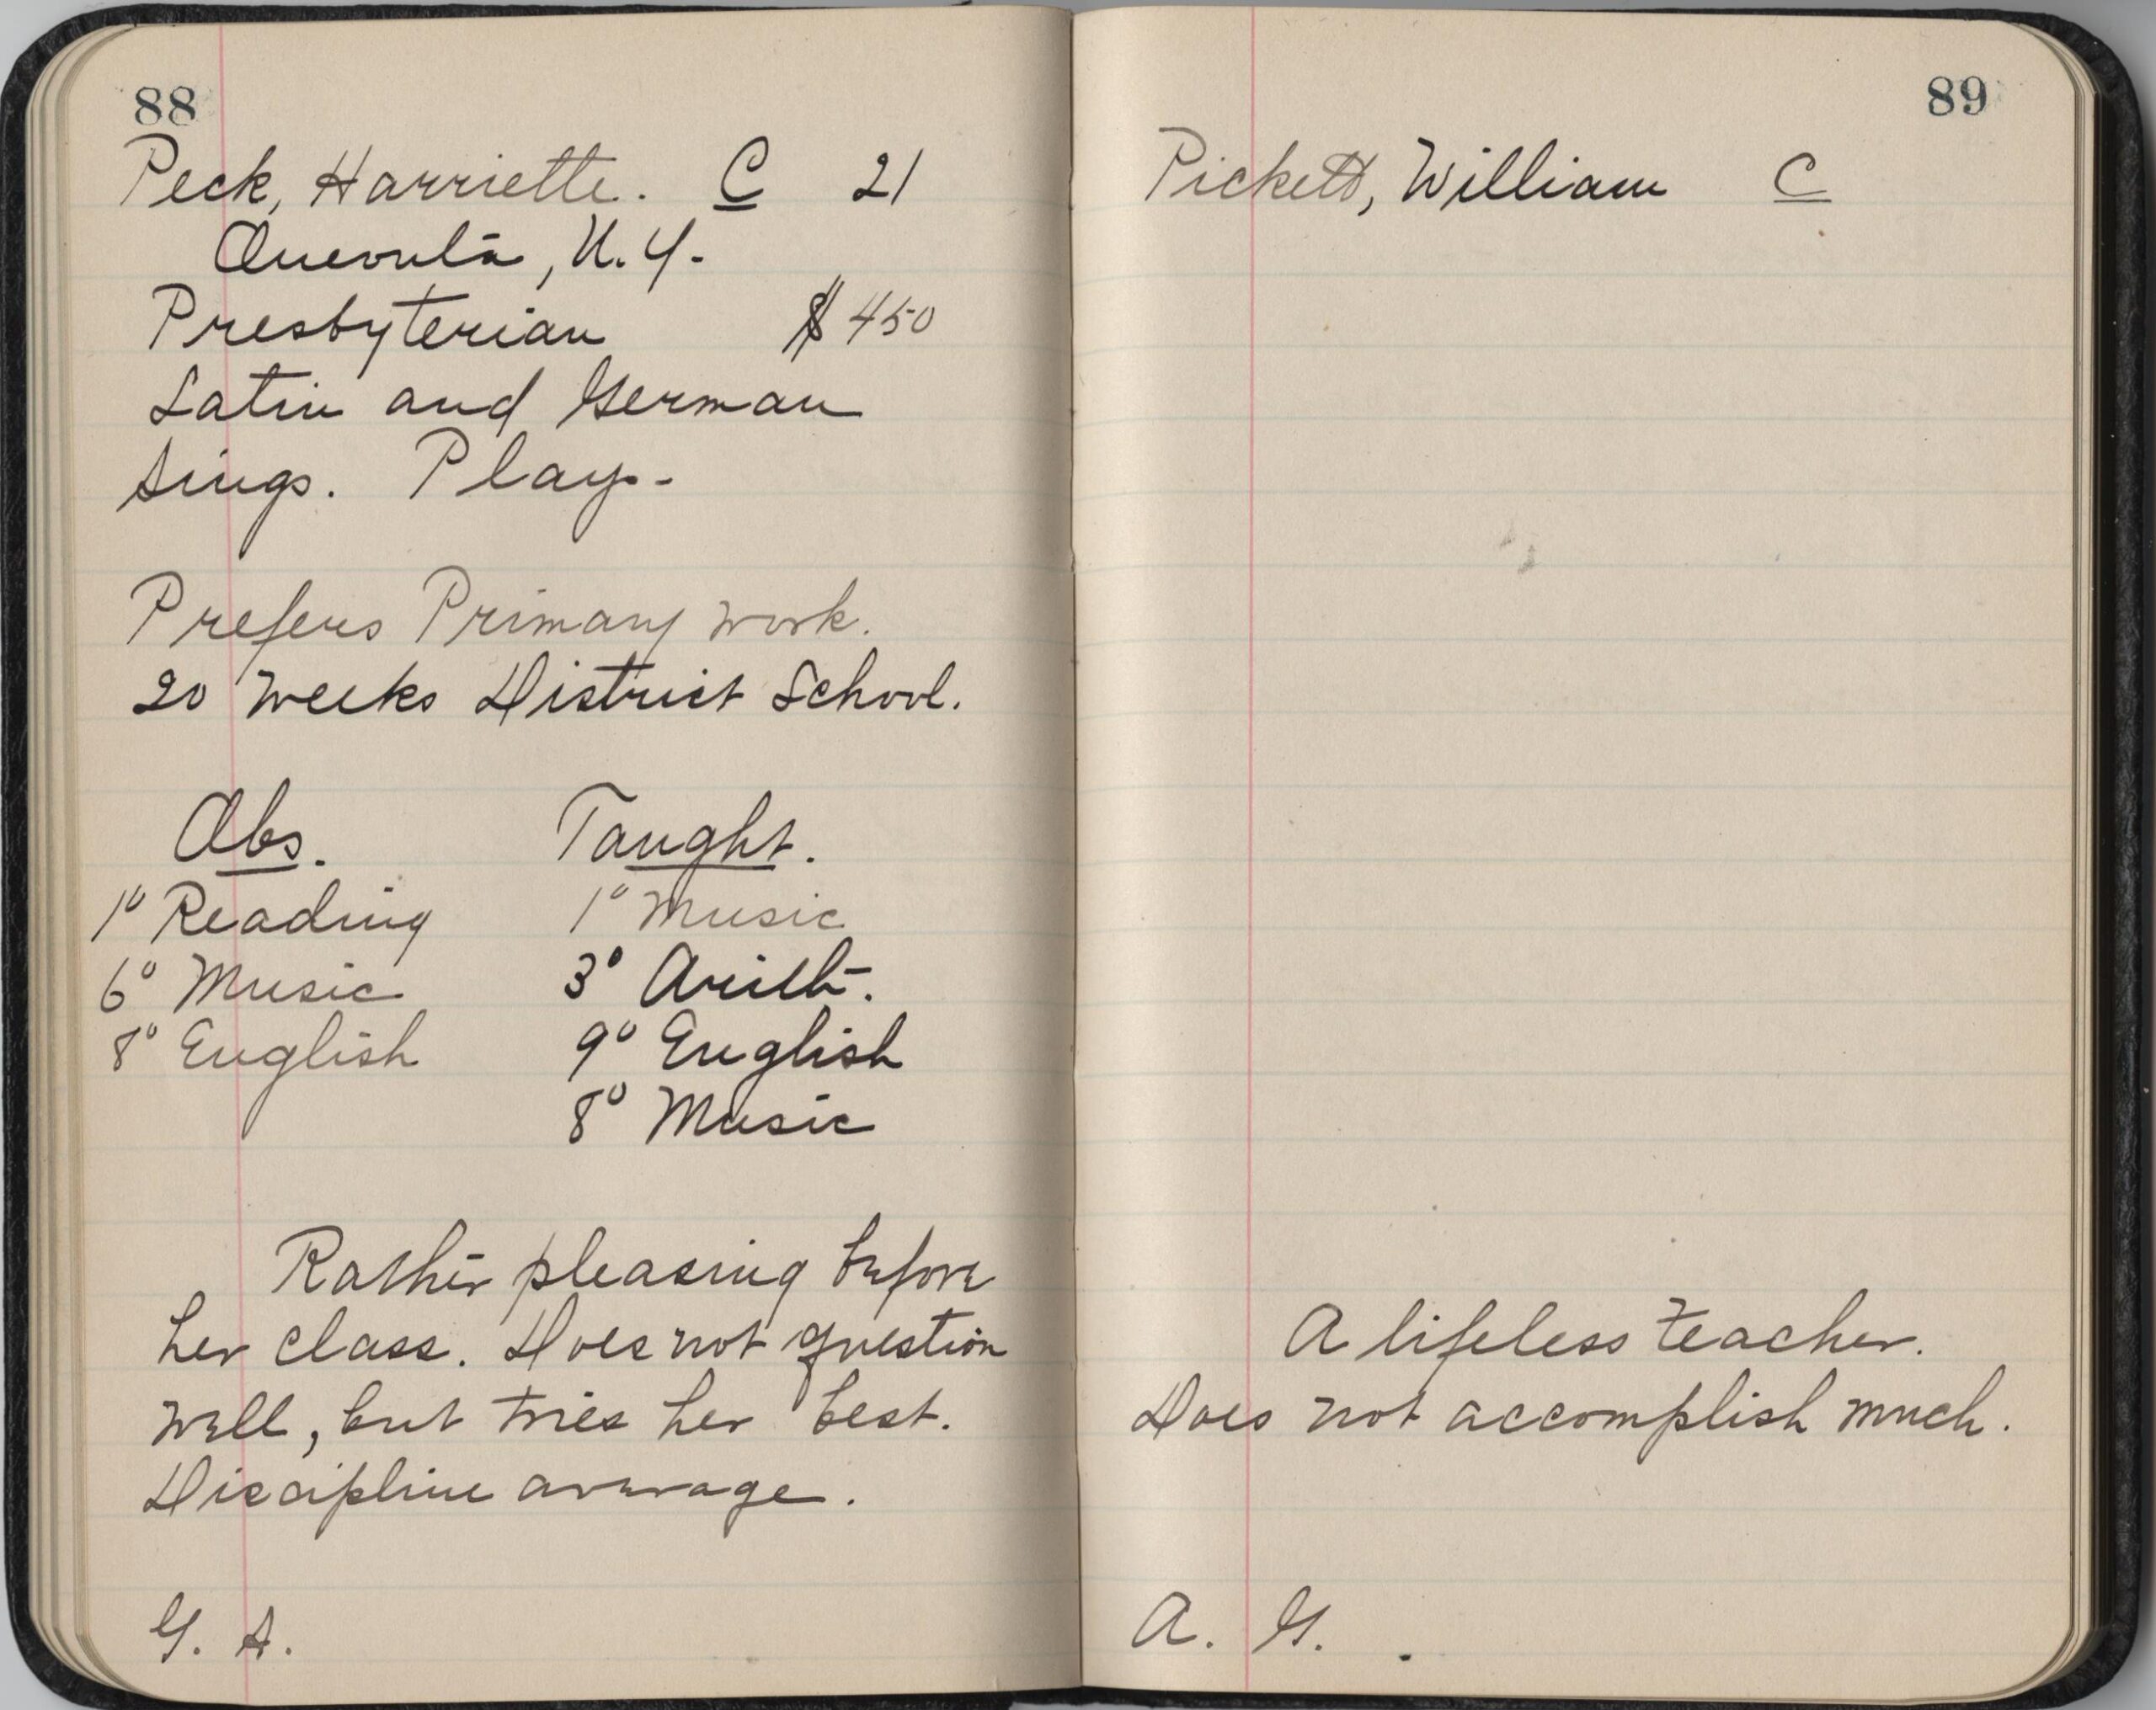 88
Peck, Harriette. C 21
Queonta, N.Y.
Presbyterian $450
Latin and German
Sings. Plays-
Prefers Primary work.
20 weeks District School.
Obs. Taught.
1º Reading 1º Music
6º Music 3º Arith.
8º English 9º English
8º Music
Rather pleasing before
her class. Does not question
well, but tries her best.
Discipline average.
G. A.
89
Pickett, William C
A lifeless teacher.
Does not accomplish much.
A. G.